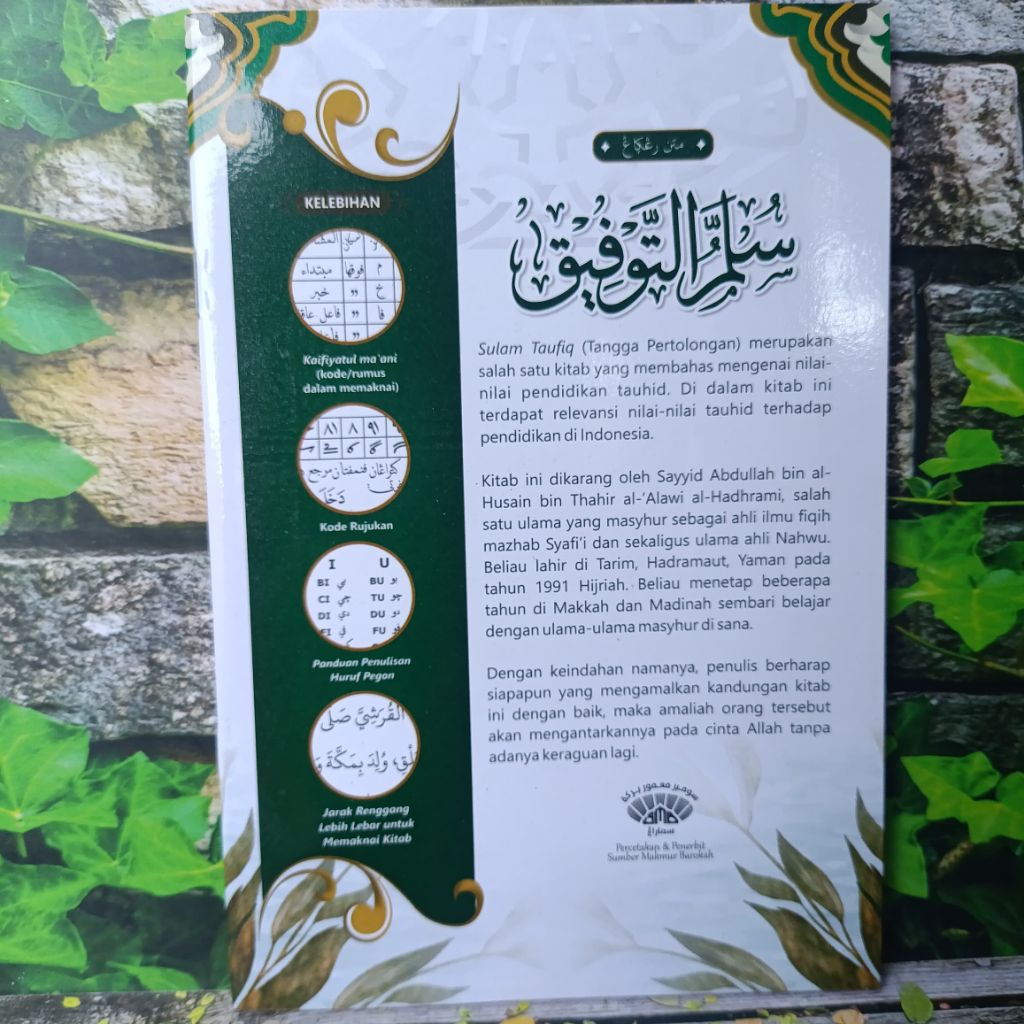 KELEBIHAN
م فوقها مبتداء
خ " خبر
فا " فاعل عاقل
Kaifiyatul ma'ani
(kode/rumus
dalam memaknai)
٩١ ٨ ٨١
دَخَلَ
Kode Rujukan
I U
BI بي BU بو
CI چي TU
DI دي DU دو
FI في FU فو
Panduan Penulisan
Huruf Pegon
القُرَشِيَّ صَلَّى
وُلِدَ بِمَكَّةَ وَ
Jarak Renggang
Lebih Lebar untuk
Memaknai Kitab
متن رڠڮاڠ
سُلَّمُ التَّوْفِيْقِ
Sulam Taufiq (Tangga Pertolongan) merupakan
salah satu kitab yang membahas mengenai nilai-
nilai pendidikan tauhid. Di dalam kitab ini
terdapat relevansi nilai-nilai tauhid terhadap
pendidikan di Indonesia.
Kitab ini dikarang oleh Sayyid Abdullah bin al-
Husain bin Thahir al-'Alawi al-Hadhrami, salah
satu ulama yang masyhur sebagai ahli ilmu fiqih
mazhab Syafi'i dan sekaligus ulama ahli Nahwu.
Beliau lahir di Tarim, Hadramaut, Yaman pada
tahun 1991 Hijriah. Beliau menetap beberapa
tahun di Makkah dan Madinah sembari belajar
dengan ulama-ulama masyhur di sana.
Dengan keindahan namanya, penulis berharap
siapapun yang mengamalkan kandungan kitab
ini dengan baik, maka amaliah orang tersebut
akan mengantarkannya pada cinta Allah tanpa
adanya keraguan lagi.
سومبر معمور بركة
سماراڠ
Percetakan & Penerbit
Sumber Makmur Barokah